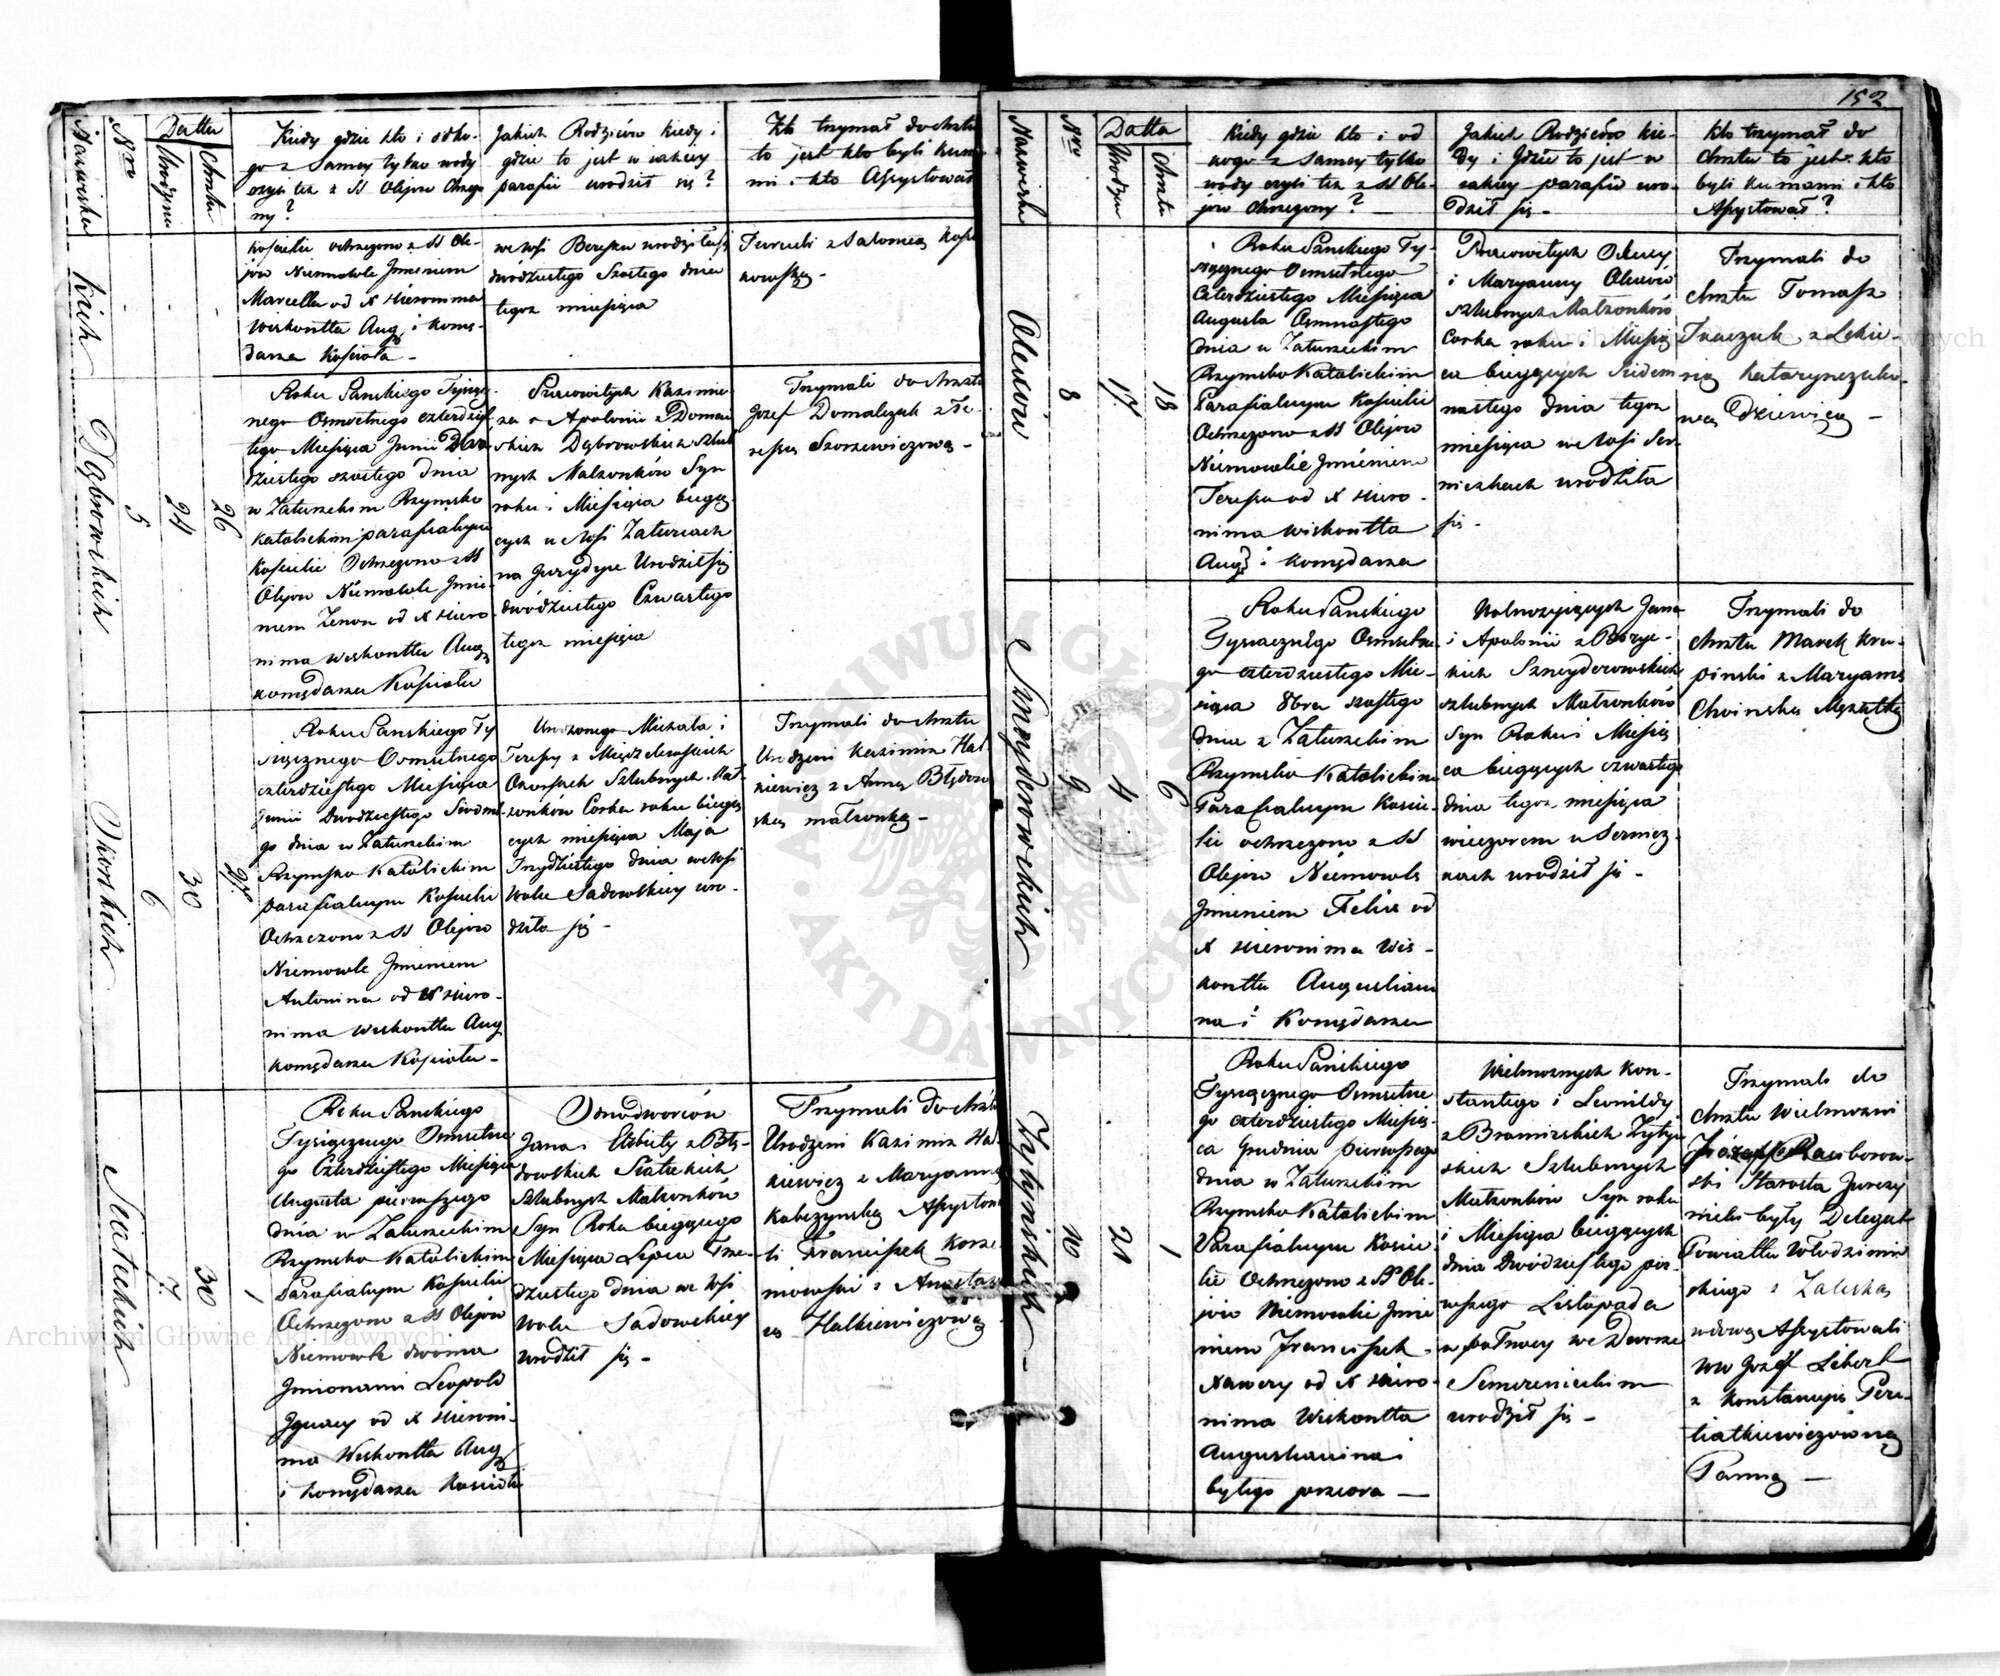 152
Nazwisko
Nro
Datta
Urodzin
Chrztu
Kiedy gdzie kto i odko-
go z Samey tylko wody
czyli tez z SS Olejow Chrzczo
ny?
Jakich Rodziców kiedy i
gdzie to jest w iakiey
parafii urodził się?
Kto trzymał do chrztu
to jest kto byli kuma
mi i kto Assystował
kich
kosciele ochrzczono z SS Ole-
jów Niemowle Jmieniem
Marcella od X Hieronima
Wiskontta Aug i kom-
darza Kościoła -
we Wsi urodziła się
dwódziestego Szóstego dnia
tegoż miesiąca
z Salomeą
Dąbrowskich
5
24
26
Roku Panskiego Tysiącz-
nego Osmsetnego czterdzies
tego Miesiąca Junii Dwu
dziestego szóstego dnia
w Zaturzeckim Rzymsko
katolickim parafialnym
Kosciele Ochrzczono z SS
Olejow Niemowle Jmie-
niem Zenon od X Hiero
nima Wiskontta Aug
komędarza Kościoła
Pracowitych Kazimie-
rza i Apolonii z Doman
skich Dąbrowskich szlub
nych Malzonków Syn
roku i Miesiąca bieżą-
cych w Wsi Zaturcach
na Jurydyce Urodził się
dwódziestego Czwartego
tegoż miesiąca
Trzymali do chrztu
Jozef Domalczuk z Te-
ressą
6
30
27
Roku Panskiego Ty
siącznego Osmsetnego
czterdziestego Miesiąca
Junii Dwudziestego Siodme
go dnia w Zaturzeckim
Rzymsko Katolickim
parafialnym Kosciele
Ochrzczono z SS Olejow
Niemowle Jmieniem
Antonina od X Hiero-
nima Wiskontta Aug
komędarza Kościoła -
Urodzonego Michała i
Teressy z
Szlubnych Mał-
żonków Corka roku bieżą
cych miesiąca Maja
Trzydziestego dnia we Wsi
Woli Sadowskiey uro-
dziła się -
Trzymali do chrztu
Urodzeni Kazimierz Hal
kiewicz z Anną Błędow
ską małzonką -
7
30
1
Roku Panskiego
Tysiącznego Osmsetne
go Czterdziestego Miesiąca
Augusta pierwszego
dnia w Zaturzeckim
Rzymsko Katolickim
Parafialnym Kosciele
Ochrzczono z SS Olejow
Niemowle dwoma
Jmionami Leopold
Jgnacy od X Hieroni-
ma Wiskontta Aug
i komędarza Kościoła
Jednodworców
Jana i Elżbiety z Błę-
dowskich
Szlubnych Małzonków
Syn Roku bieżącego
Miesiąca Lipca Trze-
dziestego dnia we Wsi
Woli Sadowskiey
urodził się -
Trzymali do chrztu
Urodzeni Kazimierz Hal-
kiewicz z Maryanną
Assystowa
li Franciszek Korze-
niowski z
Halkiewiczową
Nazwisko
Nro
Datta
Urodzin
Chrztu
Kiedy gdzie kto i od
kogo z samey tylko
wody czyli tez z SS Ole-
jów chrzczony? -
Jakich Rodziców kie-
dy i gdzie to jest w
iakiey parafii uro-
dził się -
Kto trzymał do
chrztu to jest kto
byli kumami i kto
Assystował?
8
17
18
Roku Panskiego Ty-
siącznego Osmsetnego
Czterdziestego Miesiąca
Augusta Osmnastego
dnia w Zaturzeckim
Rzymsko Katolickim
Parafialnym Kosciele
Ochrzczono z SS Olejow
Niemowlie Jmieniem
Teressa od X Hiero-
nima Wiskontta
Aug i komędarza
Pracowitych
i Maryanny
szlubnych Małzonków
Corka roku i Miesią
ca bieżących Siedem
nastego dnia tegoż
miesiąca we Wsi Ser-
niczkach urodziła
się -
Trzymali do
chrztu Tomasz
Tkaczuk z
Katarynczuko-
wą Dziewicą -
Sznyderowskich
9
4
6
Roku Panskiego
Tysiącznego Osmsetne
go czterdziestego Mie-
siąca 8bra szóstego
dnia z Zaturzeckim
Rzymsko Katolickim
Parafialnym Koscie-
le ochrzczono z SS
Olejow Niemowle
Jmieniem Felix od
X Hieronima Wis-
kontta Augustiani
na i Komędarza
Wolnożyjących Jana
i Apolonii z
Sznyderowskich
szlubnych Małzonków
Syn Roku i Miesią
ca bieżących czwartego
dnia tegoż miesiąca
wieczorem w Sernicz-
kach urodził się -
Trzymali do
chrztu Marek Kru-
pinski z Maryanną
Choinską Mężatką
Zytyńskich -
10
21
1
Roku Pańskiego
Tysiącznego Osmsetne
go czterdziestego Miesią-
ca Grudnia pierwszego
dnia w Zaturzeckim
Rzymsko Katolickim
Parafialnym Koscie
le Ochrzczono z SS Ole-
jów Niemowlie Jmie
niem Franciszek -
Xawery od X Hiero-
nima Wiskontta
Augustianina i
byłego przeora -
Wielmoznych Kon-
stantego i Leonildy
z Bromirskich Zytyń
skich Szlubnych
Małzonków Syn roku
i Miesiąca bieżących
dnia Dwódziestego pier-
wszego Listopada
w połnocy we Dworze
Semerenieckim
urodził się -
Trzymali do
chrztu Wielmozni
Starosta
były Delegat
Powiatu Włodzimir
skiego z Zaleską
wdową Assystowali
WW Jozef Libert
z Konstancyą Pere-
tiatkiewiczówną
Panną -
ARCHIWUM GŁÓWNE AKT DAWNYCH
Archiwum Główne Akt Dawnych
Archiwum Główne Akt Dawnych